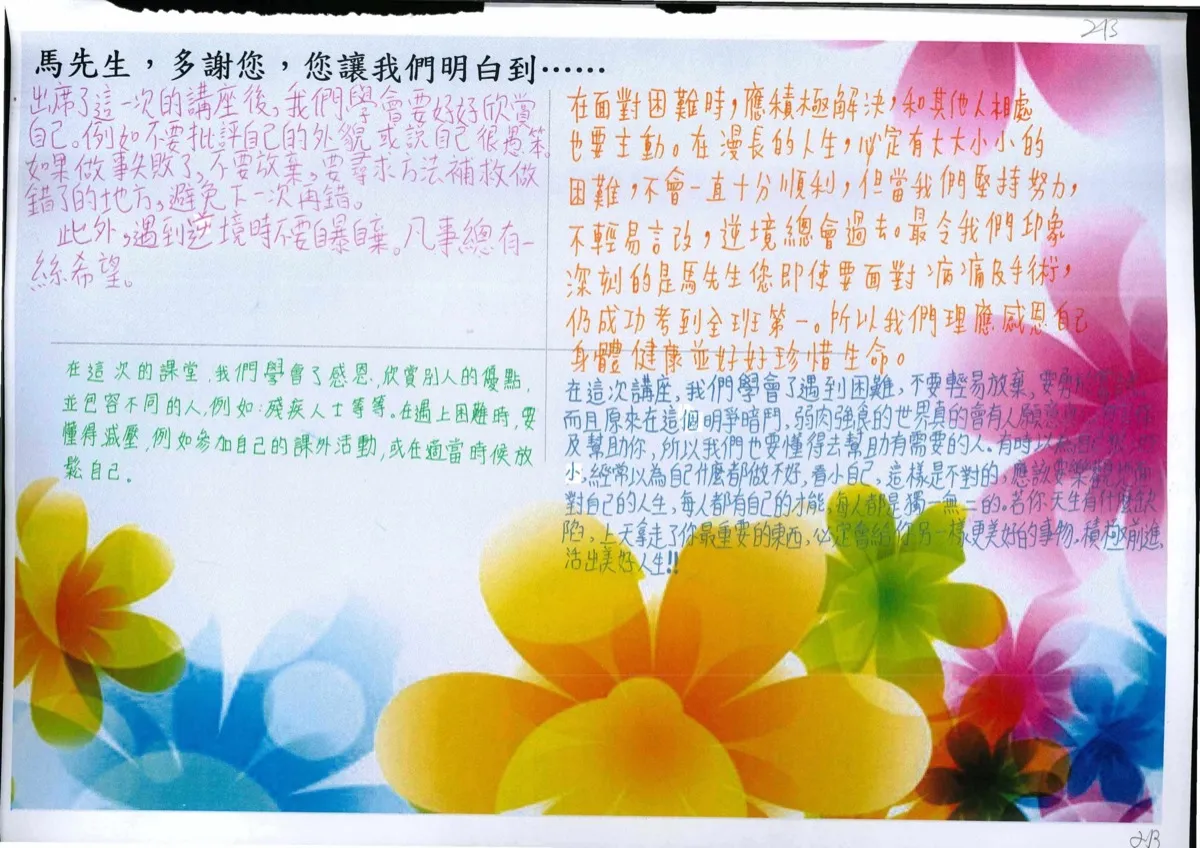 2B
馬先生，多謝您，您讓我們明白到……
出席了這一次的講座後，我們學會要好好欣賞
自己。例如不要批評自己的外貌或說自己很愚笨。
如果做事失敗了，不要放棄，要尋求方法補救做
錯了的地方，避免下一次再錯。
此外，遇到逆境時不要自暴自棄。凡事總有一
絲希望。
在面對困難時，應積極解決，和其他人相處
也要主動。在漫長的人生，必定有大大小小的
困難，不會一直十分順利，但當我們堅持努力，
不輕易言改，逆境總會過去。最令我們印象
深刻的是馬先生您即使要面對病痛及手術，
仍成功考到全班第一。所以我們理應感恩自己
身體健康並好好珍惜生命。
在這次的課堂，我們學會了感恩、欣賞別人的優點，
並包容不同的人，例如：殘疾人士等等。在遇上困難時，要
懂得減壓，例如參加自己的課外活動，或在適當時候放
鬆自己。
在這次講座，我們學會了遇到困難，不要輕易放棄，要
而且原來在這個明爭暗鬥，弱肉強食的世界真的會有人願意
及幫助你，所以我們也要懂得去幫助有需要的人。有時以為自己
小，經常以為自己什麼都做不好，看小自己，這樣是不對的，應該要樂觀地面
對自己的人生，每人都有自己的才能，每人都是獨一無二的。若你天生有什麼缺
陷，上天拿走了你最重要的東西，必定會給你另一樣更美好的事物。積極前進，
活出美好人生!!
2B